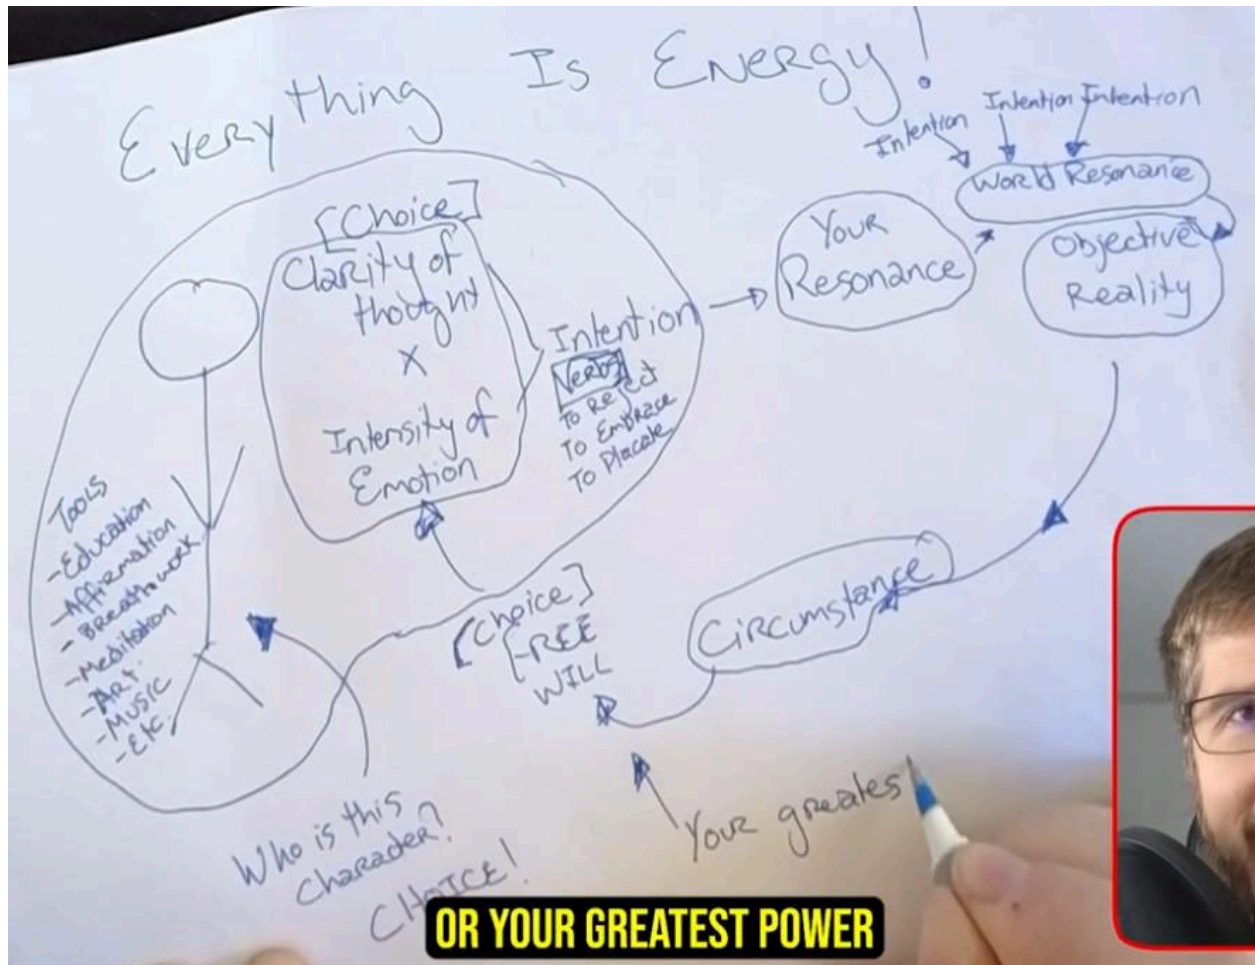 Everything Is Energy!
Intention
Intention
Intention
World Resonance
Objective
Reality
Your
Resonance
[Choice]
Clarity of
thought
X
Intensity of
Emotion
Intention
Verbs
To Reject
To Embrace
To Placate
Tools
-Education
-Affirmation
-Breathwork
-Meditation
-Art
-Music
-Etc.
[Choice]
FREE
WILL
Circumstance
Your greates
Who is this
Character?
CHOICE!
OR YOUR GREATEST POWER